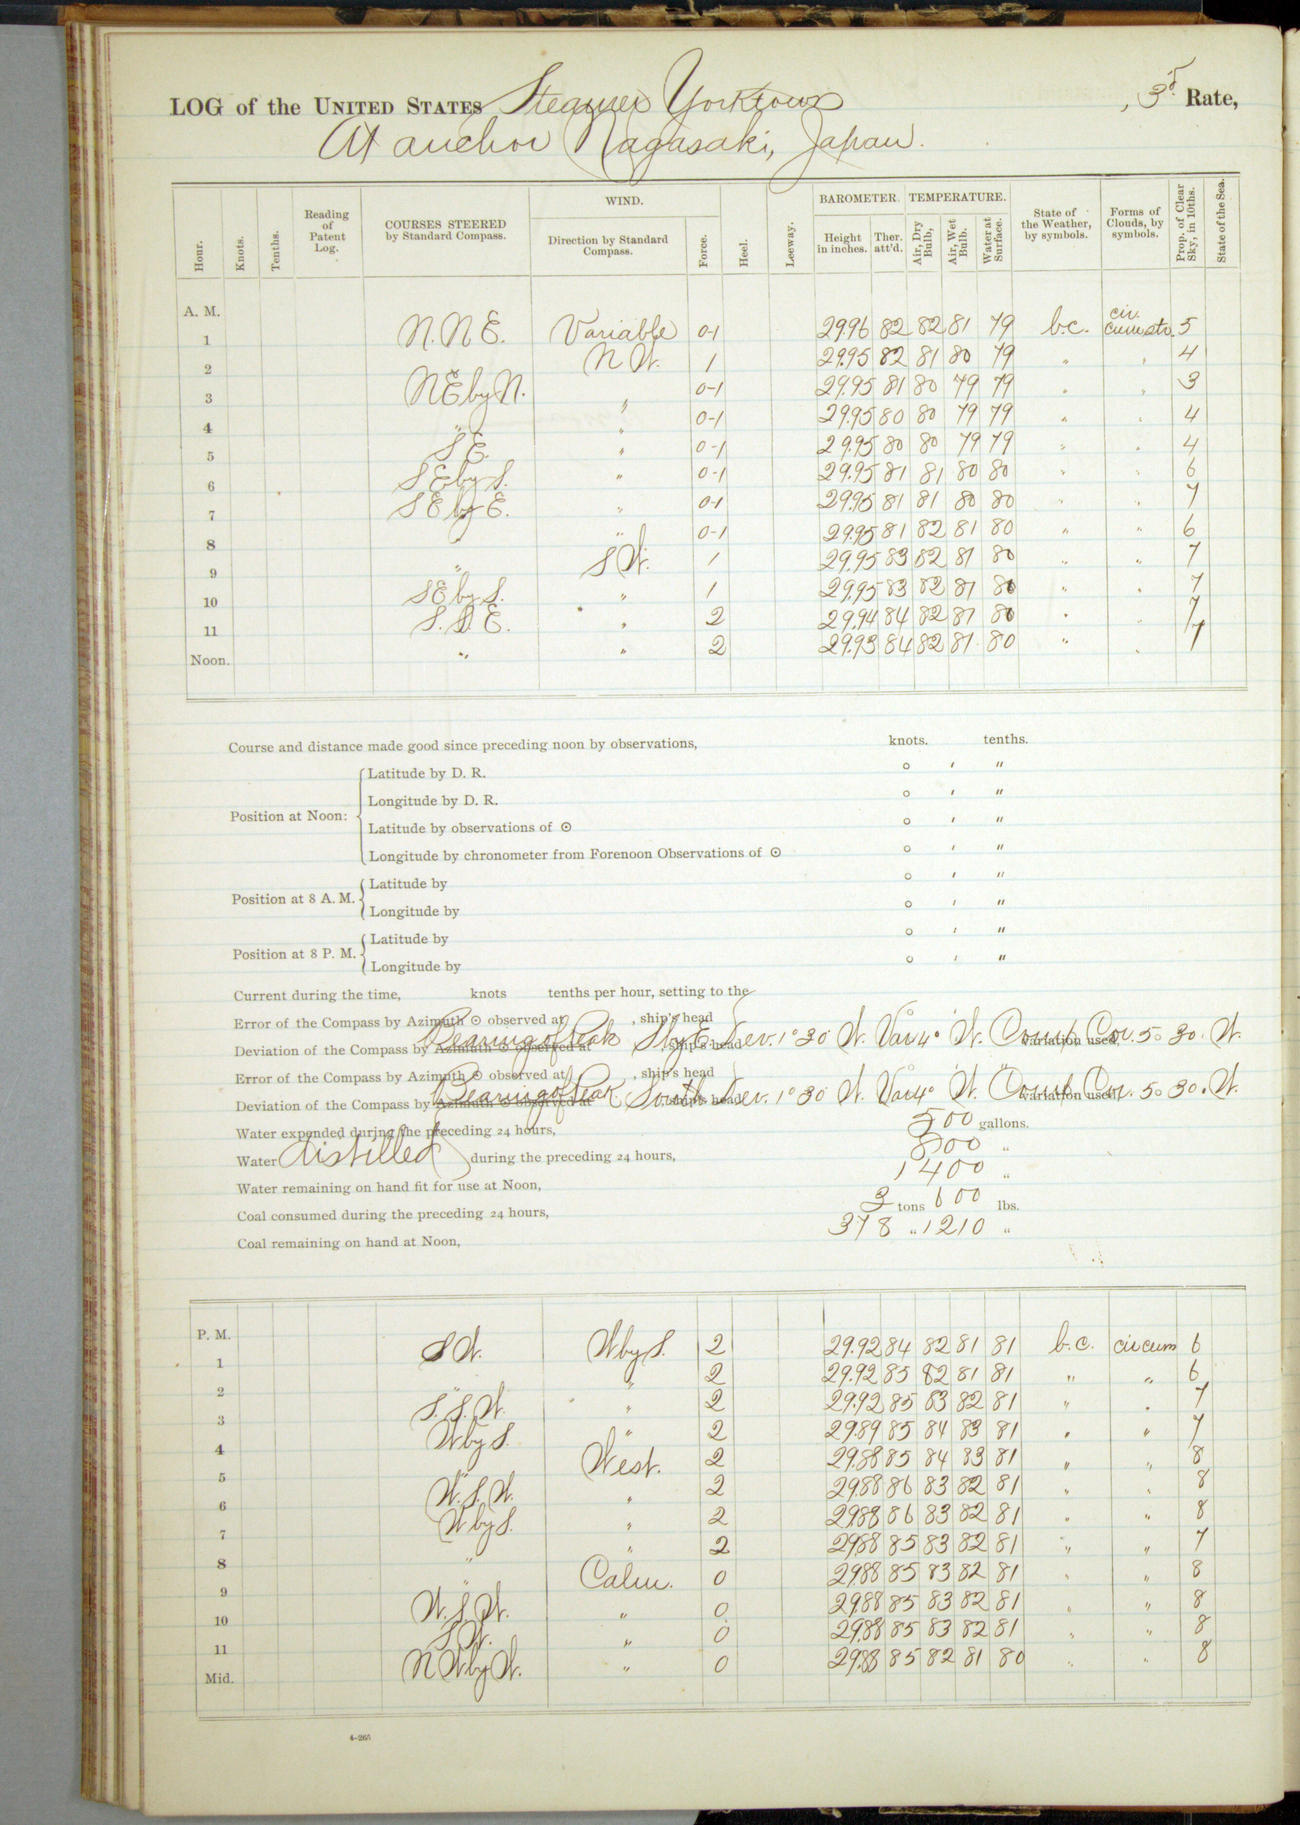 LOG of the UNITED STATES Steamer Yorktown, 3d Rate,
At anchor Nagasaki, Japan.
Hour. Knots. Tenths. Reading of Patent Log. COURSES STEERED by Standard Compass. WIND. Direction by Standard Compass. Force. Heel. Leeway. BAROMETER. Height in inches. Ther. att'd. TEMPERATURE. Air, Dry Bulb. Air, Wet Bulb. Water at Surface. State of the Weather, by symbols. Forms of Clouds, by symbols. Prop. of Clear Sky, in 10ths. State of the Sea.
A. M.
1 N.N.E. Variable 0-1 29.96 82 82 81 79 b.c. cir. cum str. 5
2 N.W. 1 29.95 82 81 80 79 " " 4
3 NE by N. " 0-1 29.95 81 80 79 79 " " 3
4 " " 0-1 29.95 80 80 79 79 " " 4
5 S E. " 0-1 29.95 80 80 79 79 " " 4
6 S E by S. " 0-1 29.95 81 81 80 80 " " 6
7 S E by E. " 0-1 29.95 81 81 80 80 " " 7
8 " " 0-1 29.95 81 82 81 80 " " 6
9 " S W. 1 29.95 83 82 81 80 " " 7
10 SE by S. " 1 29.95 83 82 81 80 " " 7
11 S.S.E. " 2 29.94 84 82 81 80 " " 7
Noon. " " 2 29.93 84 82 81 80 " " 7
Course and distance made good since preceding noon by observations, knots. tenths.
Position at Noon: Latitude by D. R. ° ′ ″
Longitude by D. R. ° ′ ″
Latitude by observations of ☉ ° ′ ″
Longitude by chronometer from Forenoon Observations of ☉ ° ′ ″
Position at 8 A. M. Latitude by ° ′ ″
Longitude by ° ′ ″
Position at 8 P. M. Latitude by ° ′ ″
Longitude by ° ′ ″
Current during the time, knots tenths per hour, setting to the
Error of the Compass by Azimuth ☉ observed at , ship's head
Deviation of the Compass by Azimuth ☉ observed at Bearing of Peak , ship's head S by E Dev. 1° 30' W. Var 4° W. variation used, Comp. Cor. 5° 30' W.
Error of the Compass by Azimuth ☉ observed at , ship's head
Deviation of the Compass by Azimuth ☉ observed at Bearing of Peak. , ship's head South Dev. 1° 30' W. Var 4° W. variation used, Comp. Cor. 5° 30' W.
Water expended during the preceding 24 hours, 500 gallons.
Water distilled during the preceding 24 hours, 800 "
Water remaining on hand fit for use at Noon, 1400 "
Coal consumed during the preceding 24 hours, 3 tons 600 lbs.
Coal remaining on hand at Noon, 378 " 1210 "
P. M.
1 S W. W by S. 2 29.92 84 82 81 81 b.c. cir cum 6
2 " " 2 29.92 85 82 81 81 " " 6
3 S.S.W. " 2 29.92 85 83 82 81 " " 7
4 W by S. " 2 29.89 85 84 83 81 " " 7
5 " West. 2 29.88 85 84 83 81 " " 8
6 W.S.W. " 2 29.88 86 83 82 81 " " 8
7 W by S. " 2 29.88 86 83 82 81 " " 8
8 " " 2 29.88 85 83 82 81 " " 7
9 " Calm. 0 29.88 85 83 82 81 " " 8
10 W.S.W. " 0 29.88 85 83 82 81 " " 8
11 S W. " 0 29.88 85 83 82 81 " " 8
Mid. N W by W. " 0 29.88 85 82 81 80 " " 8
4-265